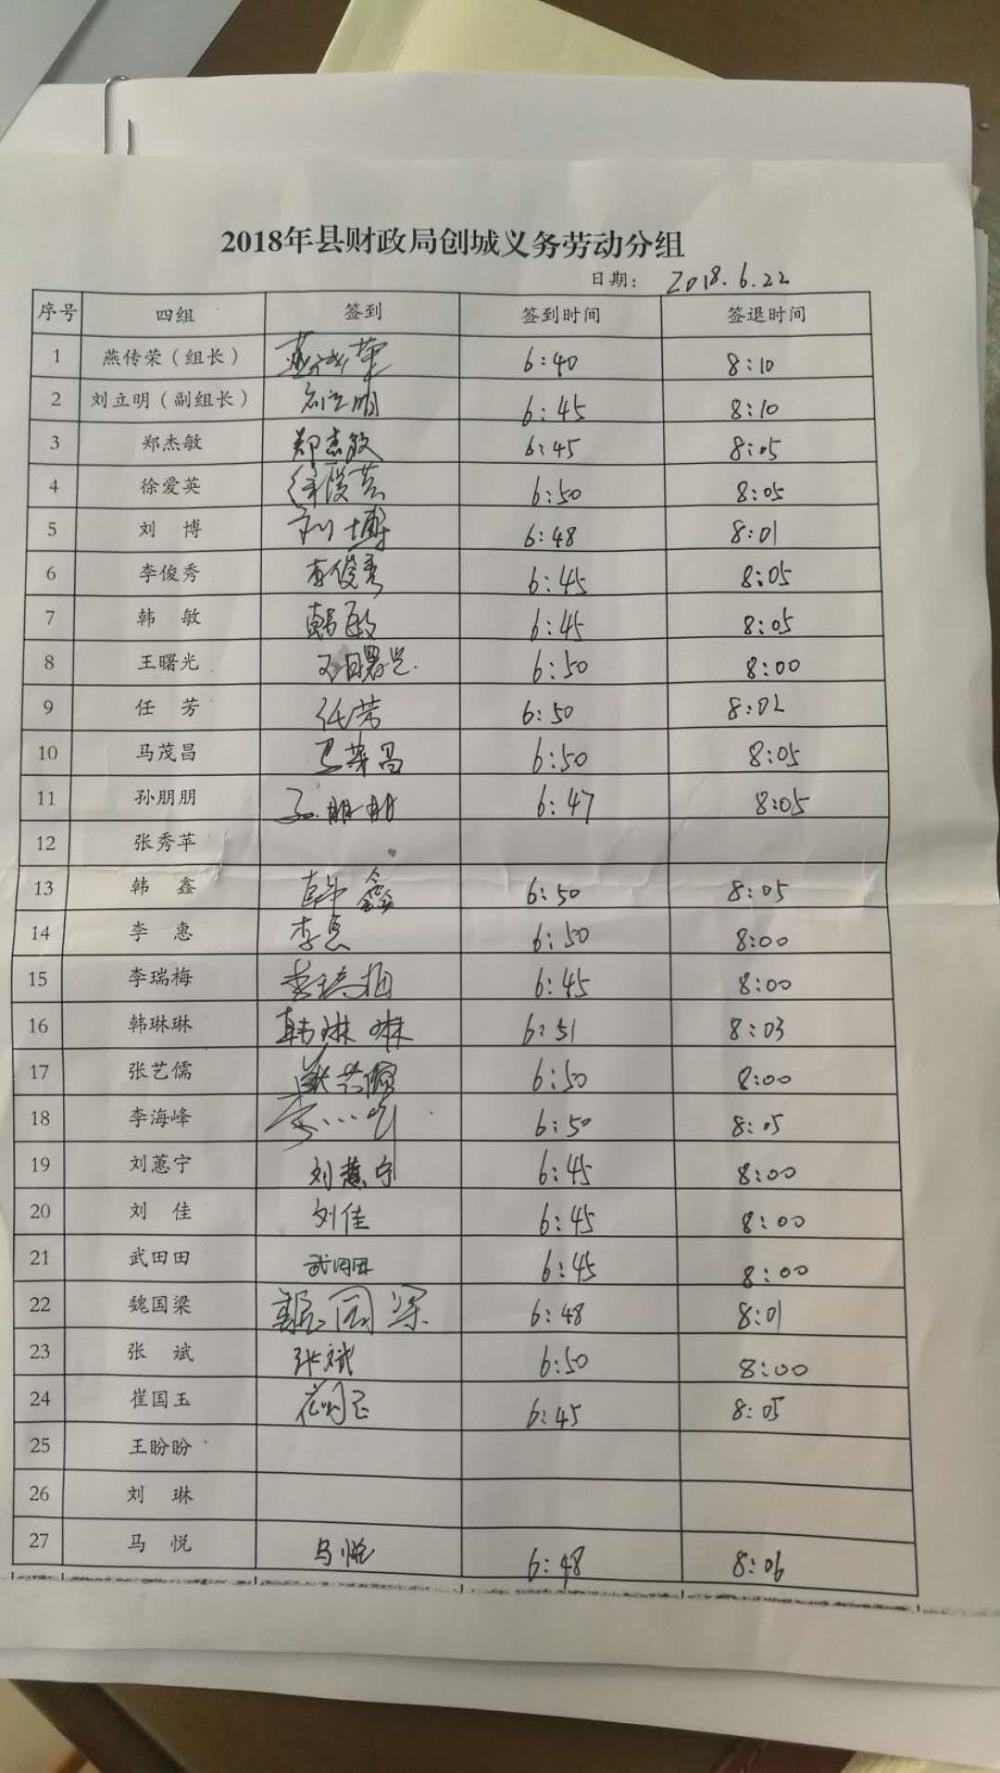 2018年县财政局创城义务劳动分组
日期： 2018.6.22
序号 四组 签到 签到时间 签退时间
1 燕传荣（组长） 燕传荣 6:40 8:10
2 刘立明（副组长） 刘立明 6:45 8:10
3 郑杰敏 郑杰敏 6:45 8:05
4 徐爱英 徐爱英 6:50 8:05
5 刘 博 刘博 6:48 8:01
6 李俊秀 李俊秀 6:45 8:05
7 韩 敏 韩敏 6:45 8:05
8 王曙光 王曙光 6:50 8:00
9 任 芳 任芳 6:50 8:02
10 马茂昌 马茂昌 6:50 8:05
11 孙朋朋 孙朋朋 6:47 8:05
12 张秀苹
13 韩 鑫 韩鑫 6:50 8:05
14 李 惠 李惠 6:50 8:00
15 李瑞梅 李瑞梅 6:45 8:00
16 韩琳琳 韩琳琳 6:51 8:03
17 张艺儒 张艺儒 6:50 8:00
18 李海峰 6:50 8:05
19 刘蕙宁 刘蕙宁 6:45 8:00
20 刘 佳 刘佳 6:45 8:00
21 武田田 武田田 6:45 8:00
22 魏国梁 魏国梁 6:48 8:01
23 张 斌 张斌 6:50 8:00
24 崔国玉 崔国玉 6:45 8:05
25 王盼盼
26 刘 琳
27 马 悦 马悦 6:48 8:06